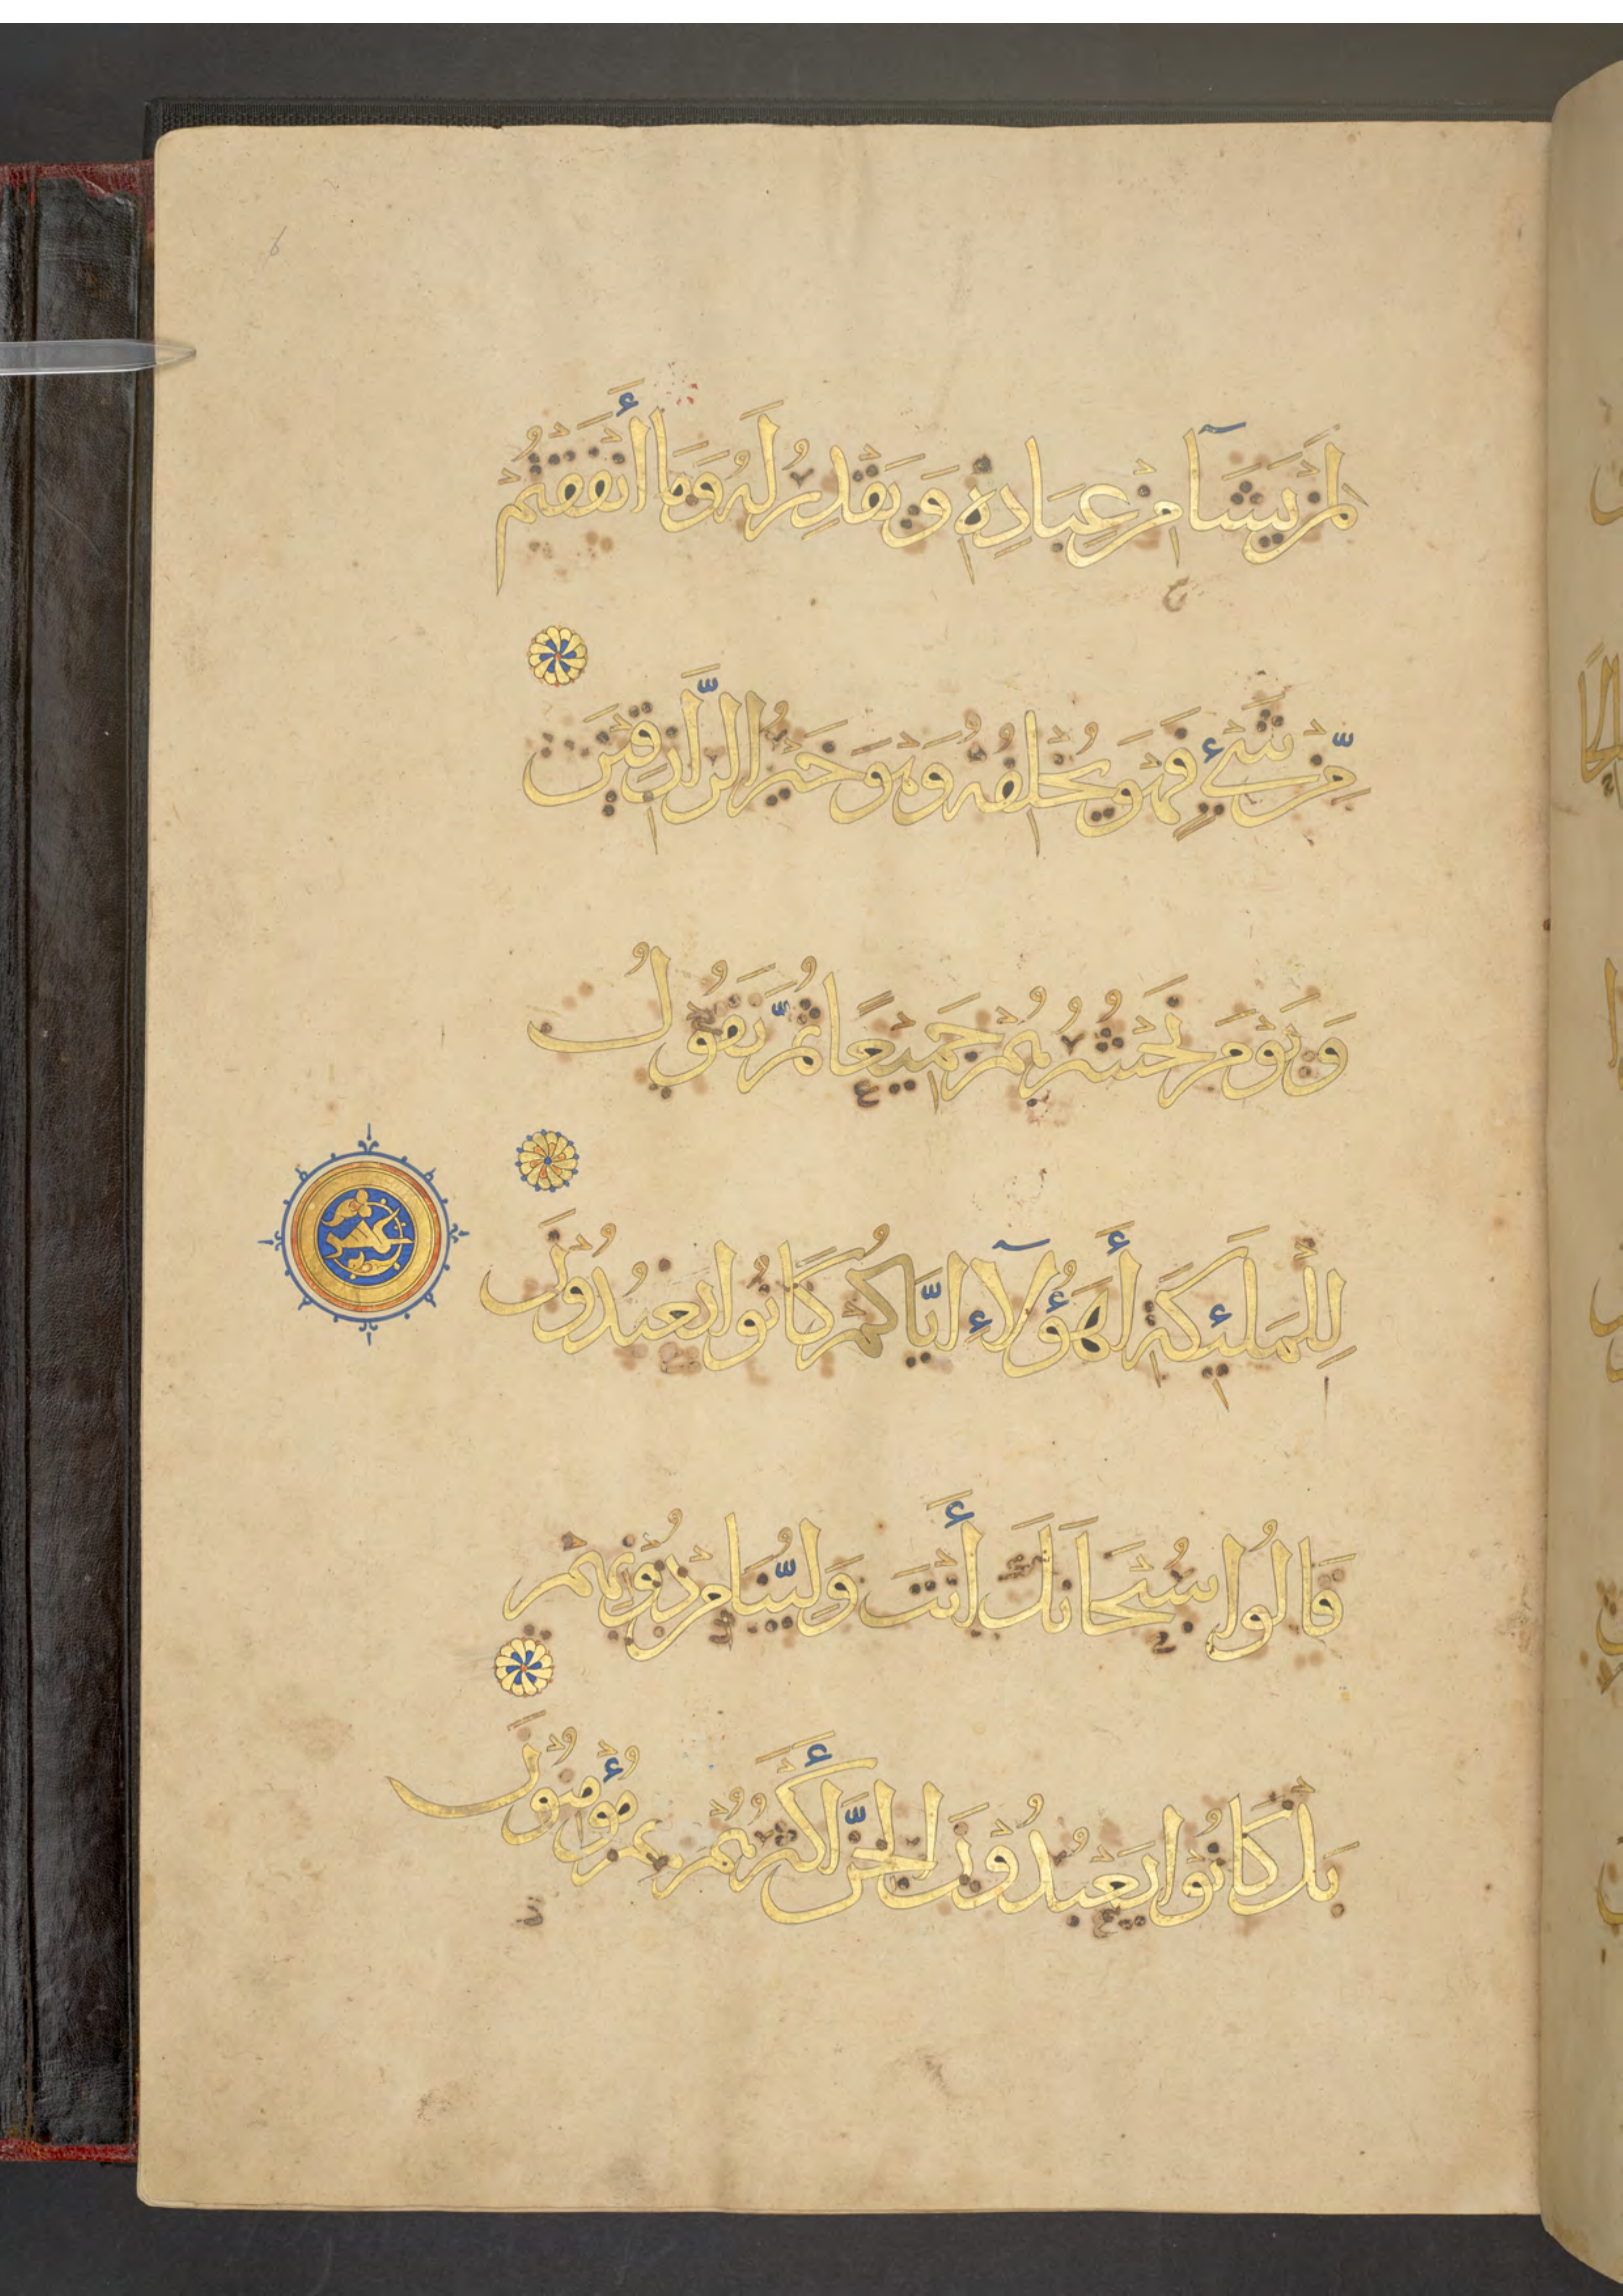 لِمَنْ يَشَآءُ مِنْ عِبَادِهِ وَيَقْدِرُ لَهُ وَمَا أَنْفَقْتُمْ
مِّنْ شَيْءٍ فَهُوَ يُخْلِفُهُ وَهْوَ خَيْرُ الرَّازِقِيْنَ
وَيَوْمَ نَحْشُرُهُمْ جَمِيْعًا ثُمَّ نَقُوْلُ
لِلْمَلٰئِكَةِ أَهَؤُلَآءِ اِيَّاكُمْ كَانُوْا يَعْبُدُوْنَ
قَالُوا سُبْحَانَكَ أَنْتَ وَلِيُّنَا مِنْ دُوْنِهِمْ
بَلْ كَانُوْا يَعْبُدُوْنَ الْجِنَّ أَكْثَرُهُمْ بِهِمْ مُؤْمِنُوْنَ